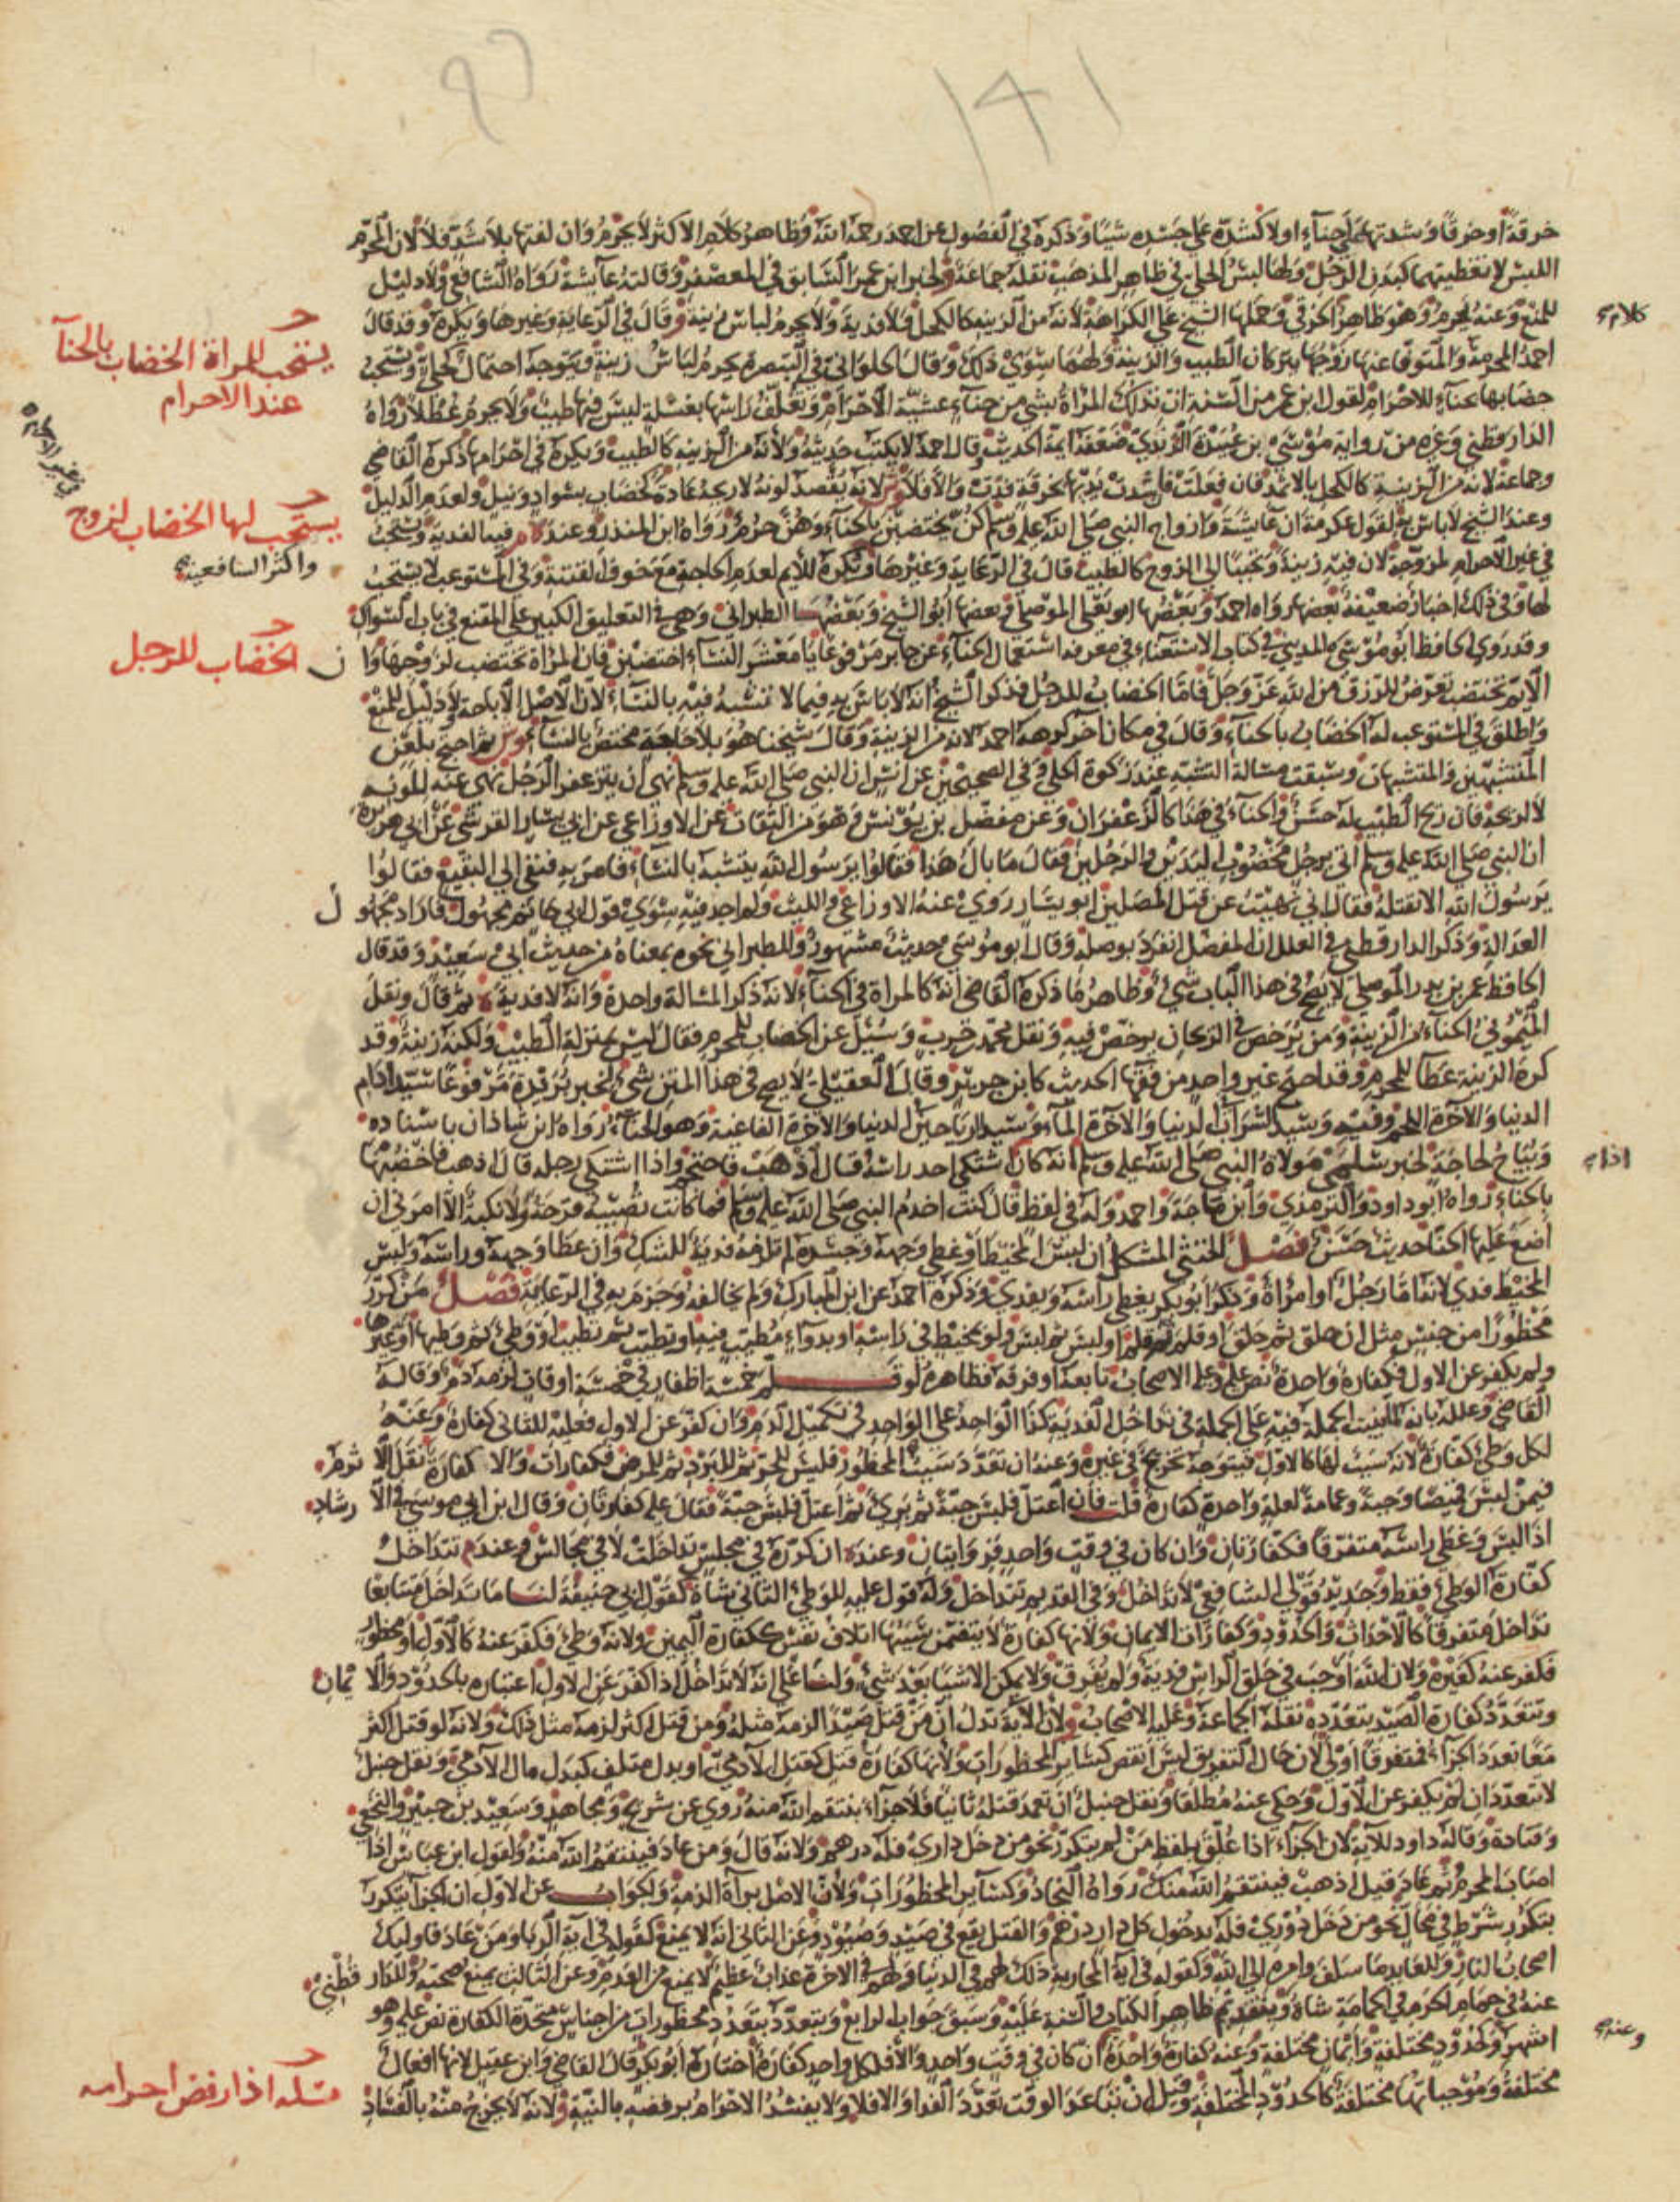 خرقة أو خرقا وشدتها على حناء أو لا كشده على جسده شيئا وذكره في الفصول عن أحمد رحمه الله وظاهر كلام الأكثر لا يحرم وإن لفتها بلا شد فلا لأن المحرم
اللبس لا تغطيتهما كبدن الرجل ولها لبس الحلي في ظاهر المذهب نقله جماعة ولخبر ابن عمر السابق في المعصفر وقالته عائشة رواه الشافعي ولا دليل
للمنع وعنه يحرم وهو ظاهر الخرقي وحملها الشيخ على الكراهة لأنه من الزينة كالكحل ولا فدية ولا يحرم لباس زينة وقال في الرعاية وغيرها ويكره وقد قال
كلام
أحمد المحرمة والمتوفى عنها زوجها يتركان الطيب والزينة ولهما سوى ذلك وقال الحلواني في التبصرة يحرم لباس زينة ويتوجه احتمال كحلي ويستحب
يستحب للمرأة الخضاب بالحنآ
عند الاحرام
خضابها بحناء للإحرام لقول ابن عمر من السنة أن تدلك المرأة بشيء من حناء عشية الإحرام وتغلف رأسها بغسلة ليس فيها طيب ولا يحرم عطلا رواه
الدارقطني وغيره من رواية موسى بن عبيدة الربذي ضعفه أئمة الحديث وقال أحمد لا يكتب حديثه ولأنه من الزينة كالطيب ويكره في إحرامها ذكره القاضي
وجماعة لأنه من الزينة كالكحل بالإثمد فإن فعلت فإن شدت يديها بخرقة فدت وإلا فلا وش لأنه يقصد لونه لا ريحه عادة كخضاب بسواد ونيل ولعدم الدليل
وعند الشيخ لا بأس به لقول عكرمة أن عائشة وأزواج النبي صلى الله عليه وسلم كن يختضبن بالحناء وهن حرم رواه ابن المنذر وعنده م فيه الفدية ويستحب
يستحب لها الخضاب لزوج
في غير الإحرام لمزوجة لأن فيه زينة وتحببا إلى الزوج كالطيب قال في الرعاية وغيرها ويكره للأيم لعدم الحاجة مع خوف الفتنة وفي المستوعب لا يستحب
واكثر الشافعية
لها وفي ذلك أخبار ضعيفة بعضها رواه أحمد وبعضها أبو يعلى الموصلي وبعضها أبو الشيخ وبعضها الطبراني وهي في التعليق الكبير على المقنع في باب السواك
وقد روى الحافظ أبو موسى المديني في كتاب الاستغناء في معرفة استعمال الحناء عن جابر مرفوعا يا معشر النساء اختضبن فإن المرأة تختضب لزوجها وإن
الخضاب للرجل
الأيم تختضب تعرض للرزق من الله عز وجل فأما الخضاب للرجل فذكر الشيخ أنه لا بأس به فيما لا تشبه فيه بالنساء لأن الأصل الإباحة ولا دليل للمنع
وأطلق في المستوعب له الخضاب بالحناء وقال في مكان آخر كرهه أحمد لأنه من الزينة وقال شيخنا هو بلا حاجة مختص بالنساء وش ثم احتج بلعن
المتشبهين والمتشبهات وسبقت مسألة التشبه عند زكوة الحلي وفي الصحيحين عن أنس أن النبي صلى الله عليه وسلم نهى أن يتزعفر الرجل نهى عنه للونه
لا لريحه فإن ريح الطيب له حسن والحناء في هذا كالزعفران وعن مفضل بن يونس وهو من الثقات عن الأوزاعي عن أبي يسار القرشي عن أبي هريرة
أن النبي صلى الله عليه وسلم أتى برجل مخضوب اليدين والرجلين فقال ما بال هذا فقالوا يرسول الله يتشبه بالنساء فأمر به فنفي إلى البقيع فقالوا
يرسول الله ألا نقتله فقال إني نهيت عن قتل المصلين أبو يسار روى عنه الأوزاعي والليث ولم أجد فيه سوى قول أبي حاتم مجهول فأراد مجهول
العدالة وذكر الدارقطني في العلل أن المفضل انفرد بوصله وقال أبو موسى حديث مشهور وللطبراني نحوه بمعناه من حديث أبي سعيد وقد قال
الحافظ عمر بن بدر الموصلي لا يصح في هذا الباب شيء وظاهر ما ذكره القاضي أنه كالمرأة في الحناء لأنه ذكر المسألة واحدة وأنه لا فدية ثم قال ونقل
الميموني الحناء من الزينة ومن يرخص في الريحان يرخص فيه ونقل محمد بن حرب وسئل عن الخضاب للمحرم فقال ليس بمنزلة الطيب ولكنه زينة وقد
كره الزينة عطاء للمحرم وقد احتج غير واحد من فقهاء الحديث كابن جرير وقال العقيلي لا يصح في هذا المتن شيء لخبر بريدة مرفوعا سيد إدام
الدنيا والآخرة اللحم وفيه وسيد الشراب في الدنيا والآخرة الماء وسيد الرياحين في الدنيا والآخرة الفاغية وهو الحناء رواه ابن شاذان بإسناده
ويباح لحاجة لخبر سلمى مولاة النبي صلى الله عليه وسلم أنه كان اشتكى أحد رأسه قال اذهب فاحتجم وإذا اشتكى رجله قال اذهب فاخضبها
اذا
بالحناء رواه أبو داود والترمذي وابن ماجه وأحمد وله في لفظ قال كنت أخدم النبي صلى الله عليه وسلم فما كانت تصيبه قرحة ولا نكبة إلا أمرني أن
أضع عليها الحنا حديث حسن فصل الخنثى المشكل إن لبس المخيط أو غطى وجهه وجسده لم تلزمه فدية للشك وإن غطا وجهه ورأسه ولبس
المخيط فدى لأنه إما رجل أو امرأة وذكر أبو بكر يغطي رأسه ويفدي وذكره أحمد عن ابن المبارك ولم يخالفه وجزم به في الرعاية فصل من كرر
محظورا من جنس مثل إن حلق ثم حلق أو قلم ثم قلم أو لبس ثم لبس ولو بمخيط في رأسه أو بدواء مطيب فيه أو تطيب ثم تطيب أو وطئ ثم وطئها أو غيرها
ولم يكفر عن الأول فكفارة واحدة نص عليه وعليه الأصحاب تابعه أو فرقه فظاهره لو قلم خمسة أظفار في خمسة أوقات لزمه دم وقاله
القاضي وعلله بأنه لما بنيت الجملة فيه على الجملة في تداخل الفدية كذا الواحد على الواحد في تكميل الدم وإن كفر عن الأول فعليه للثاني كفارة وعنه
لكل وطئ كفارة لأنه سبب لها كالأول فيتوجه تخريج في غيره وعنه إن تعدد سبب المحظور فلبس للحر ثم للبرد ثم للمرض فكفارات وإلا كفارة نقل الأثرم
فيمن لبس قميصا وجبة وعمامة لعلة واحدة كفارة قلت فإن اعتل فلبس جبة ثم برئ ثم اعتل فلبس جبة فقال عليه كفارتان وقال ابن أبي موسى في الارشاد
إذا لبس وغطى رأسه متفرقا فكفارتان وإن كان في وقت واحد فروايتان وعنده ح إن كرره في مجلس تداخلت لا في مجالس وعند م تتداخل
كفارة الوطئ فقط وجديد قولي الشافعي لا تداخل وفي القديم تتداخل وله قول عليه للوطئ الثاني شاة كقول أبي حنيفة لنا ما تداخل متتابعا
تداخل متفرقا كالأحداث والحدود وكفارات الأيمان ولأنها كفارة لا يتضمن سببها إتلاف نفس ككفارة اليمين ولأنه وطئ فكفر عنه كالأول أو محظور
فكفر عنه كغيره ولأن الله أوجب في حلق الرأس فدية ولم يفرق ولا يمكن إلا شيئا بعد شيء ولنا على أنه لا تداخل إذا كفر عن الأول اعتباره بالحدود والايمان
وتتعدد كفارة الصيد بتعدده نقله الجماعة وعليه الأصحاب ولأن الآية تدل أن من قتل صيدا لزمه مثله ومن قتل أكثر لزمه مثل ذلك ولأنه لو قتل أكثر
معا تعدد الجزاء فمتفرقا أولى لأن حال التفريق ليس أنقص كسائر المحظورات ولأنها كفارة قتل كقتل الآدمي أو بدل متلف كبدل مال الآدمي ونقل حنبل
لا تتعدد إن لم يكفر عن الأول وحكي عنه مطلقا ونقل حنبل إن تعمد قتله ثانيا فلا جزاء ينتقم الله منه روي عن شريح ومجاهد وسعيد بن جبير والنخعي
وقتادة وقاله داود للآية لأن الجزاء إذا علق بلفظ من لم يتكرر نحو من دخل داري فله درهم ولأنه قال ومن عاد فينتقم الله منه ولقول ابن عباس إذا
أصاب المحرم ثم عاد قيل اذهب فينتقم الله منك رواه النجاد وكسائر المحظورات ولأن الأصل براءة الذمة والجواب عن الأول أن الجزاء يتكرر
بتكرر شرط في محال نحو من دخل دوري فله بدخول كل دار درهم والقتل يقع في صيد وصيود وعن الثاني أنه لا يمنع كقوله في آية الربا ومن عاد فأولئك
أصحاب النار وللعائد ما سلف وأمره إلى الله وكقوله في آية المحاربة ذلك لهم في الدنيا ولهم في الآخرة عذاب عظيم لا يمنع من القدم وعن الثالث يمنع صحته وللدارقطني
عنه في حمام الحرم في الحمامة شاة وبتقديم ظاهر الكتاب والسنة عليه وسبق جواب الرابع وتتعدد بتعدد محظورات من أجناس متحدة الكفارة نص عليه وهو
أشهر وكحدود مختلفة وأيمان مختلفة وعنه كفارة واحدة إن كان في وقت واحد وإلا فلكل واحد كفارة اختاره أبو بكر وقال القاضي وابن عقيل لأنها أفعال
وعنه
مختلفة وموجباتها مختلفة كالحدود المختلفة وقيل إن تباعد الوقت تعدد الفدا وإلا فلا ولا يفسد الإحرام برفضه بالنية ولأنه لا يخرج منه بالفساد
مسئلة اذا رفض احرامه